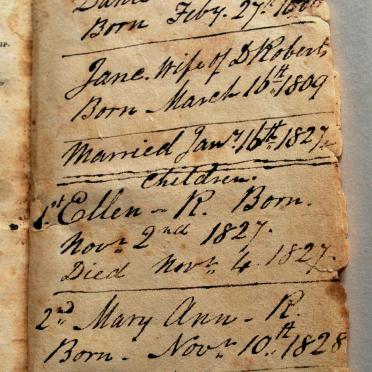 Born Feby. 27th
Jane. Wife of D Roberts
Born - March 16th 1809
Married Jany. 16th 1827.
Children.
1st Ellen - R. Born.
Novr. 2nd 1827.
Died Novr. 4. 1827.
2nd Mary Ann - R.
Born - Novr. 10th 1828